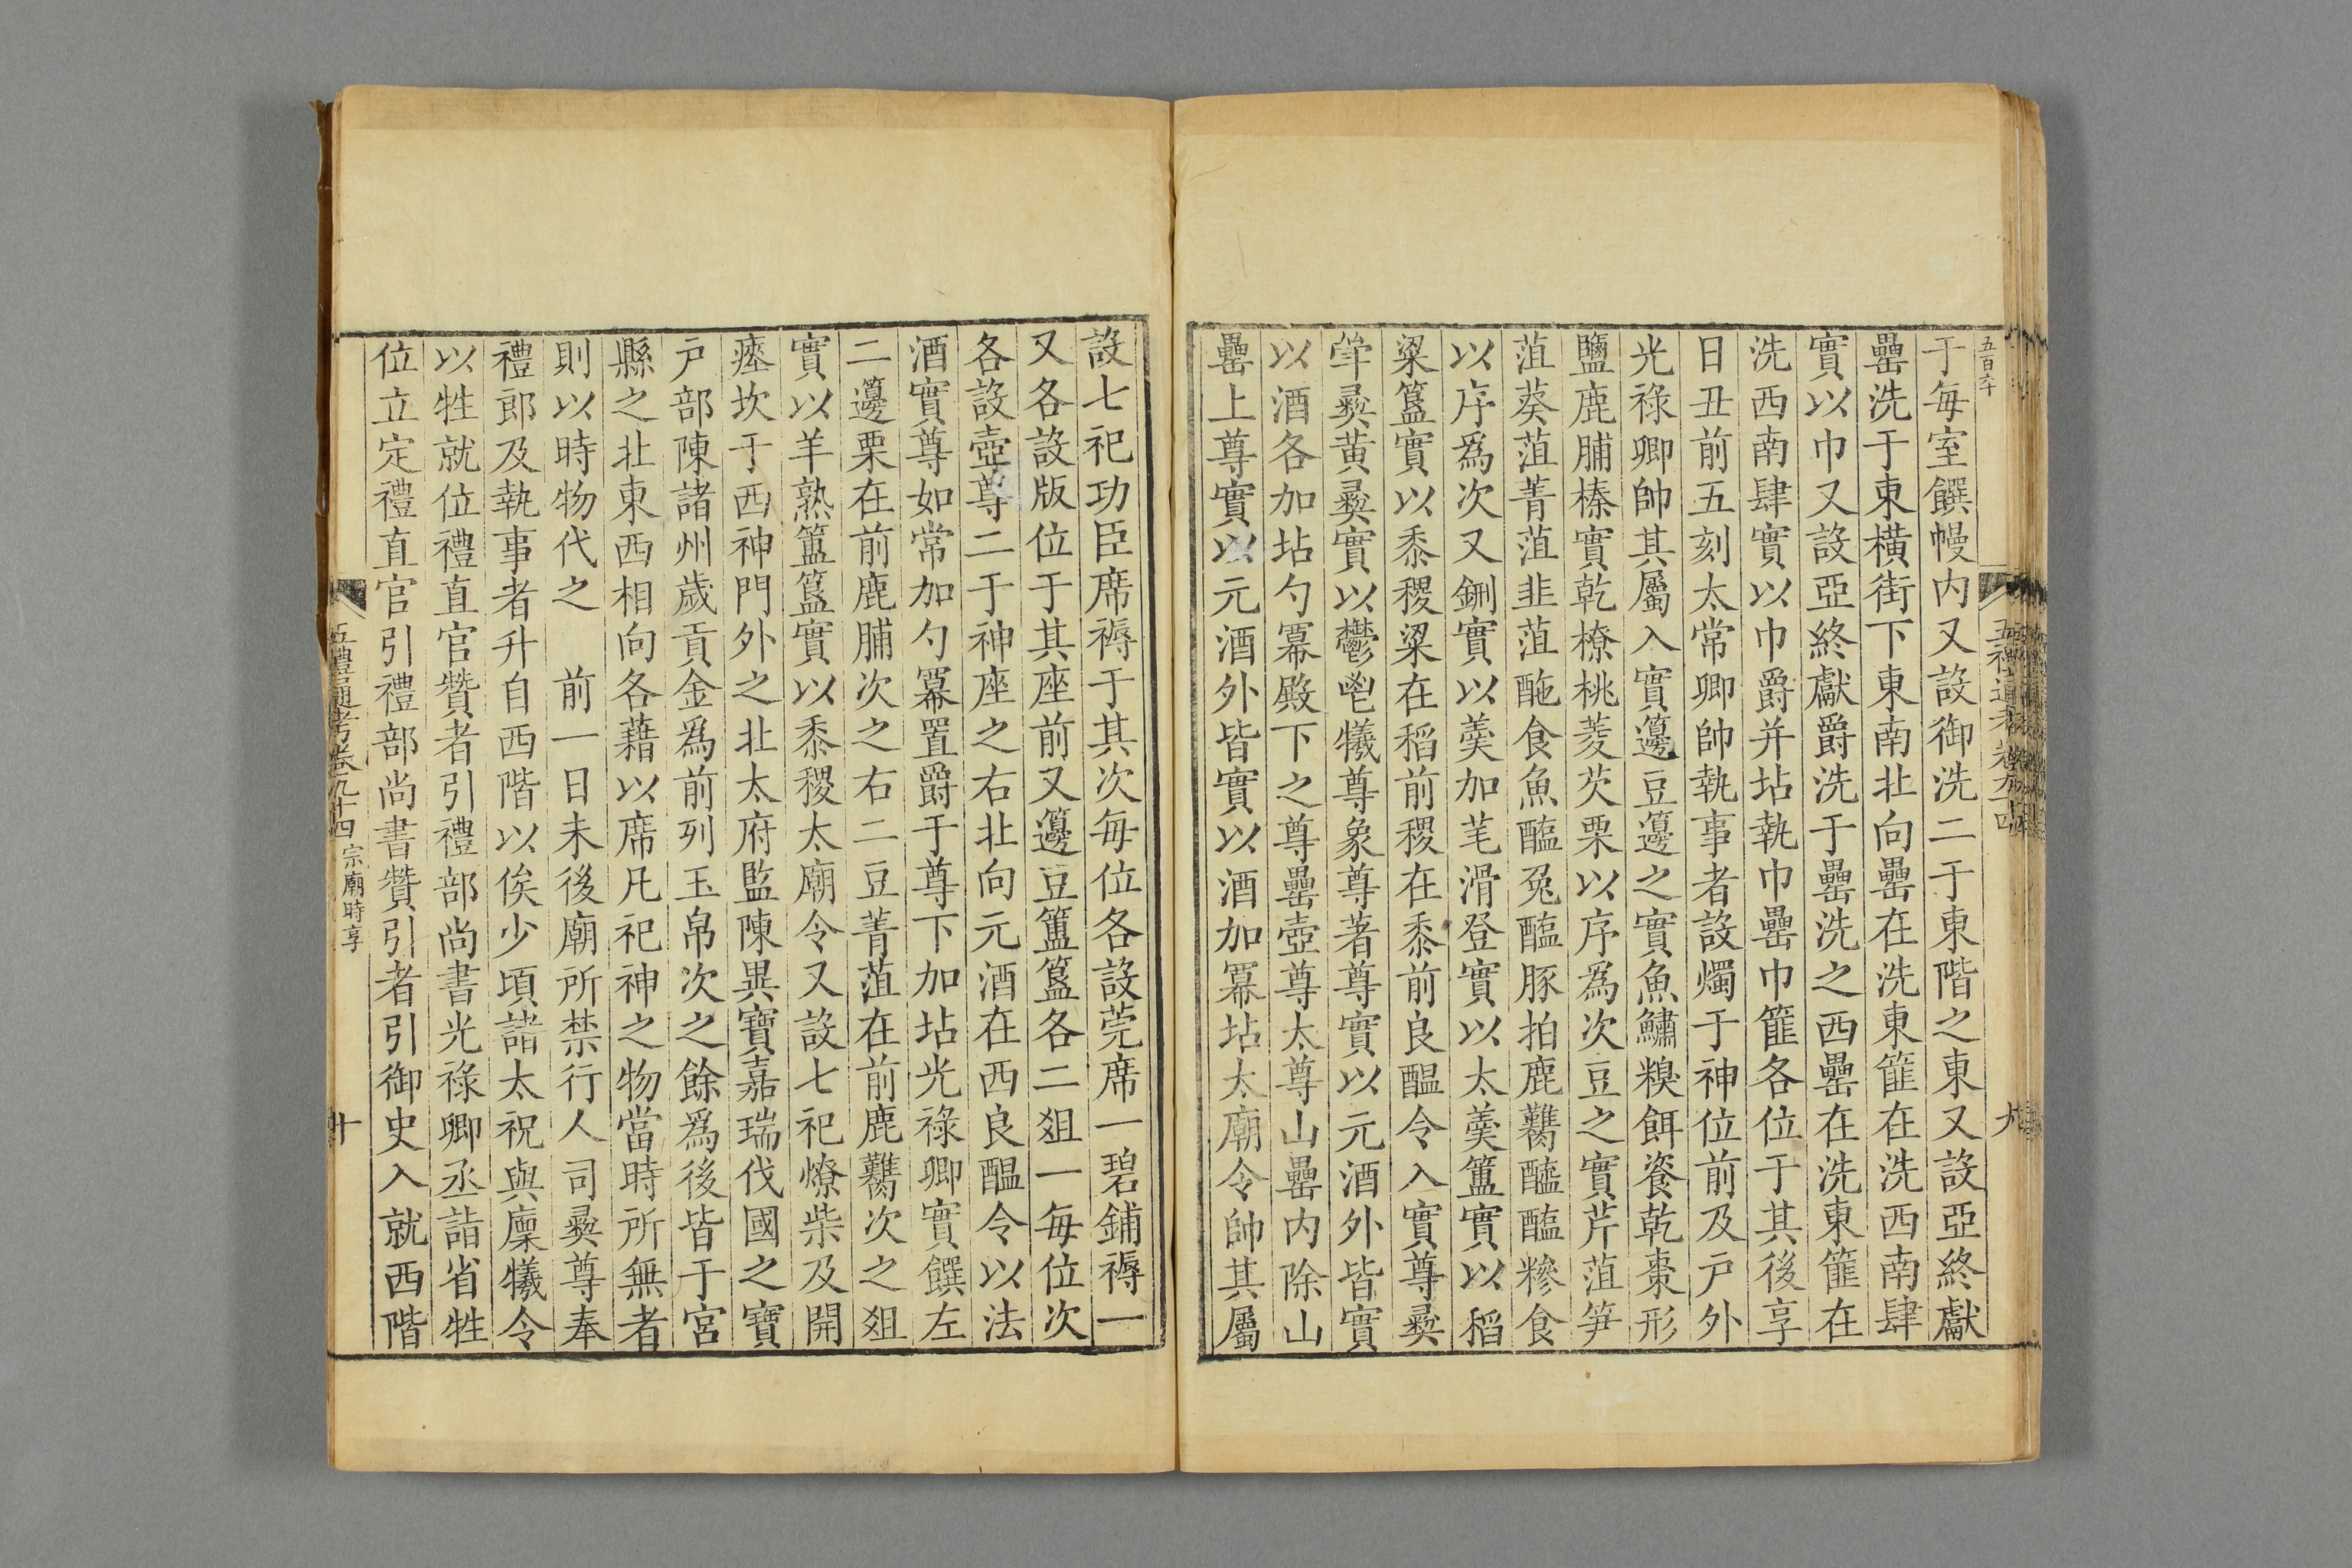 五百六十
于每室饌幔内又設御洗二于東階之東又設亞終獻
罍洗于東橫街下東南北向罍在洗東篚在洗西南肆
實以巾又設亞終獻爵洗于罍洗之西罍在洗東篚在
洗西南肆實以巾爵并坫執巾罍巾篚各位于其後享
日丑前五刻太常卿帥執事者設燭于神位前及户外
光祿卿帥其屬入實籩豆籩之實魚鱐糗餌粢乾棗形
鹽鹿脯榛實乾橑桃菱芡栗以序爲次豆之實芹菹笋
菹葵菹菁菹韭菹酏食魚醢兔醢豚拍鹿臡醓醢糝食
以序爲次又鉶實以羹加芼滑登實以太羹簠實以稻
粱簋實以黍稷粱在稻前稷在黍前良醖令入實尊彝
斝彝黃彝實以鬱鬯犧尊象尊著尊實以元酒外皆實
以酒各加坫勺冪殿下之尊罍壺尊太尊山罍内除山
罍上尊實以元酒外皆實以酒加冪坫太廟令帥其屬
五禮通考卷九十四
九
設七祀功臣席褥于其次每位各設莞席一碧鋪褥一
又各設版位于其座前又籩豆簠簋各二俎一每位次
各設壺尊二于神座之右北向元酒在西良醖令以法
酒實尊如常加勺冪置爵于尊下加坫光祿卿實饌左
二籩栗在前鹿脯次之右二豆菁菹在前鹿臡次之俎
實以羊熟簠簋實以黍稷太廟令又設七祀燎柴及開
瘞坎于西神門外之北太府監陳異寶嘉瑞伐國之寶
户部陳諸州歲貢金爲前列玉帛次之餘爲後皆于宮
縣之北東西相向各藉以席凡祀神之物當時所無者
則以時物代之　前一日未後廟所禁行人司彝尊奉
禮郎及執事者升自西階以俟少頃諸太祝與廩犧令
以牲就位禮直官贊者引禮部尚書光祿卿丞詣省牲
位立定禮直官引禮部尚書贊引者引御史入就西階
五禮通考卷九十四 宗廟時享
十